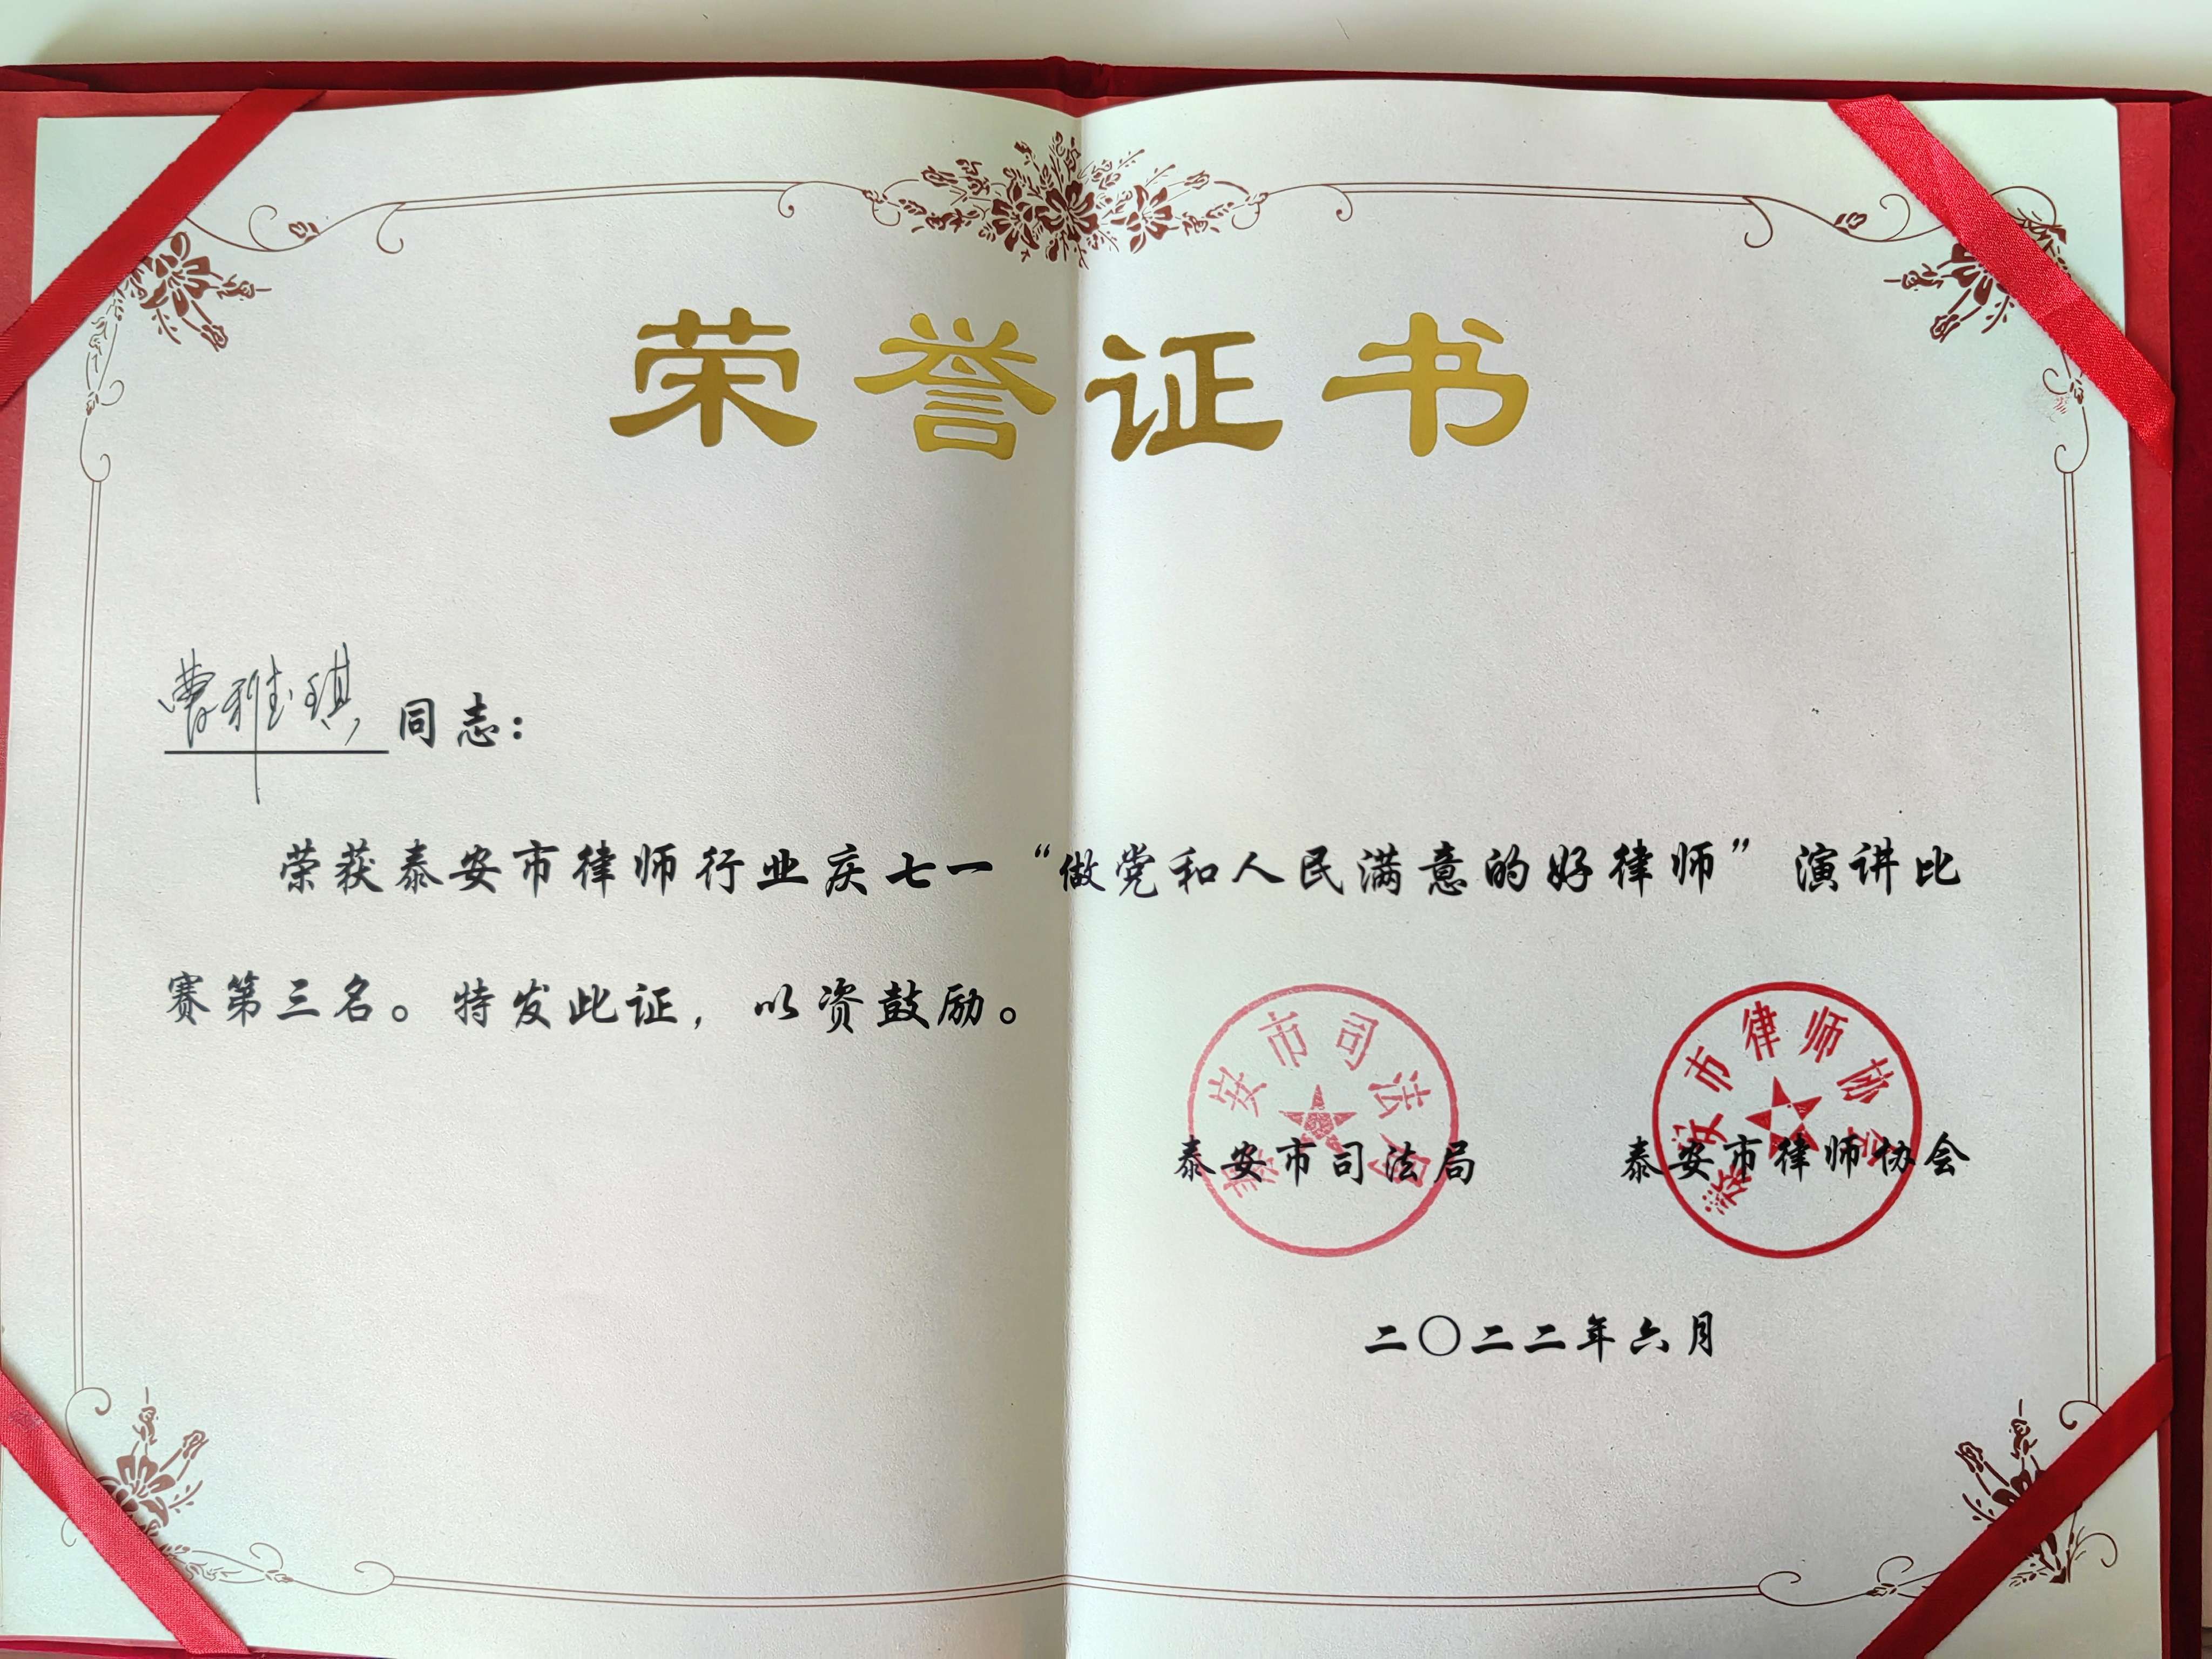 荣誉证书
曹雅琪 同志：
荣获泰安市律师行业庆七一“做党和人民满意的好律师”演讲比
赛第三名。特发此证，以资鼓励。
泰安市司法局
泰安市律师协会
泰安市司法局 泰安市律师协会
二〇二二年六月